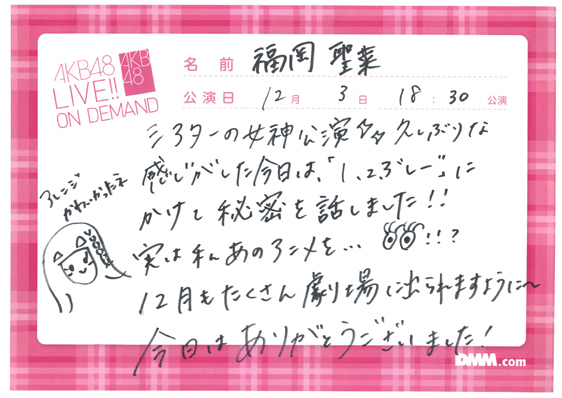 AKB48
LIVE!!
ON DEMAND
AKB
48
名前 福岡 聖菜
公演日 12月 3日 18:30 公演
シアターの女神公演 久しぶりな
感じがした今日は、「1、2、3、
かけて秘密を話しました!!
実は私あのアニメを… !!?
12月もたくさん劇場に出られますように〜
今日はありがとうございました!
アレンジ
かわいかったえ
DMM.com